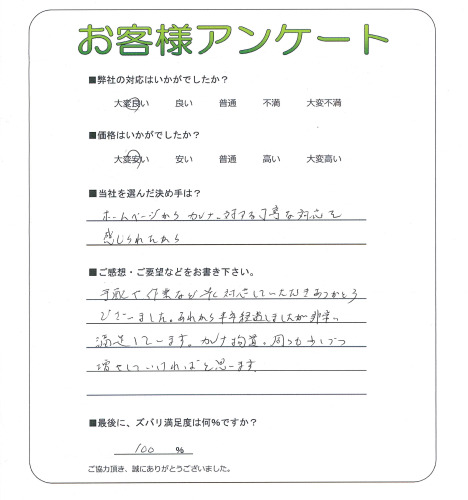 お客様アンケート
■弊社の対応はいかがでしたか？
大変良い 良い 普通 不満 大変不満
■価格はいかがでしたか？
大変安い 安い 普通 高い 大変高い
■当社を選んだ決め手は？
ホームページから 対する丁寧な対応を
感じられたから
■ご感想・ご要望などをお書き下さい。
作業など 対応していただきありがとう
ございました。あれから半年経過しましたが非常に
満足しています。 周りも少しづつ
増やしていければと思います
■最後に、ズバリ満足度は何%ですか？
100 %
ご協力頂き、誠にありがとうございました。